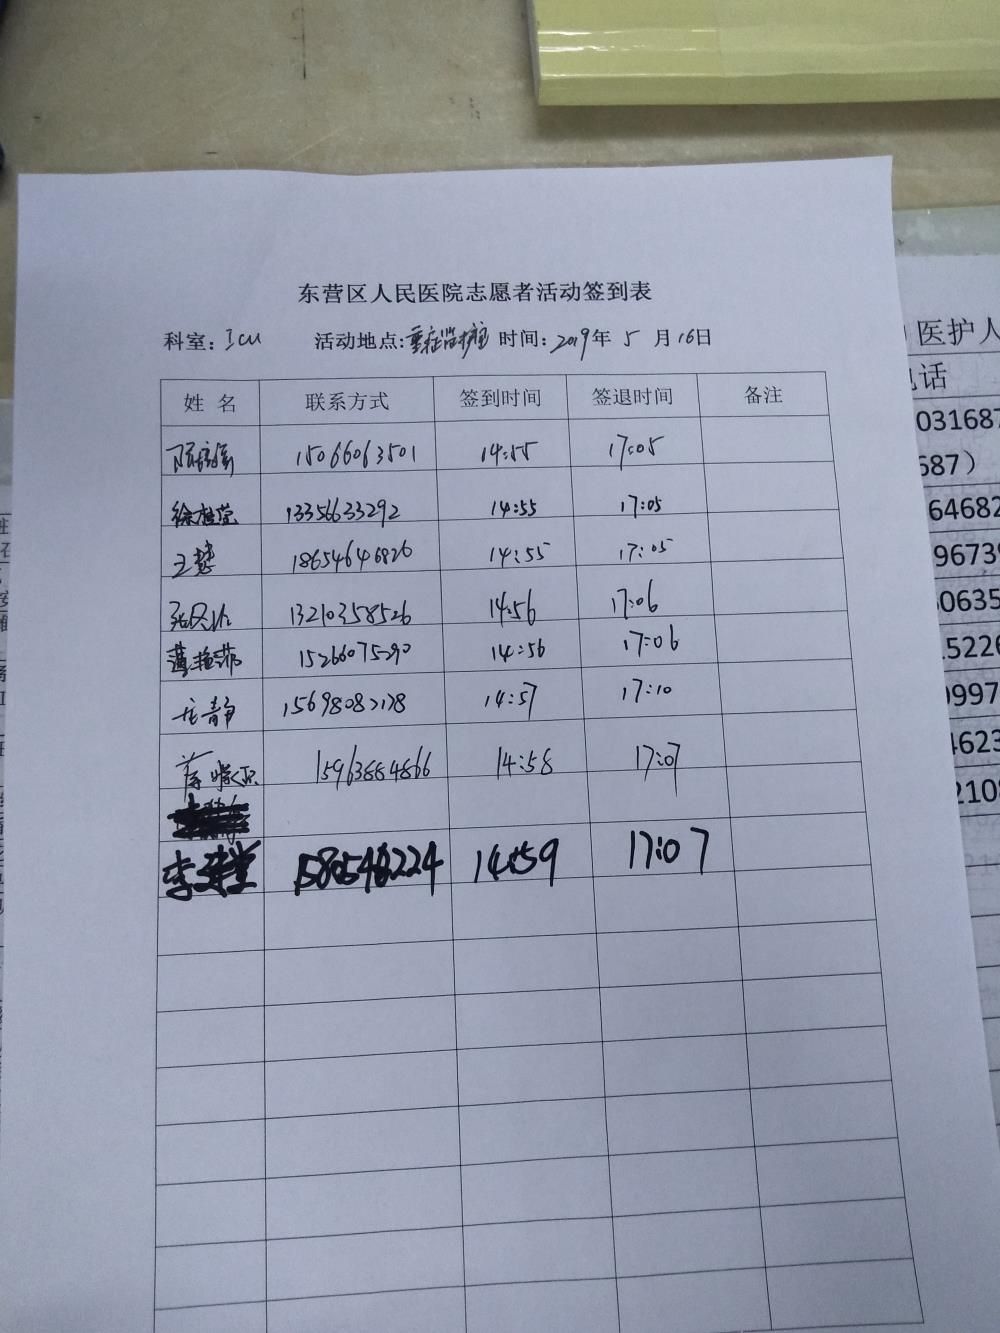 东营区人民医院志愿者活动签到表
科室: ICU 活动地点:重症监护室 时间: 2019年 5 月 16日
姓 名 联系方式 签到时间 签退时间 备注
15066063501 14:55 17:05
13356633292 14:55 17:05
王慧 18654646826 14:55 17:05
13210358526 14:56 17:06
薄艳萍 15266075290 14:56 17:06
静 15698082128 14:57 17:10
15963884866 14:58 17:07
李 14:59 17:07
医护人
电话
031687
687）
64682
96739
60635
15226
0997
4623
2108